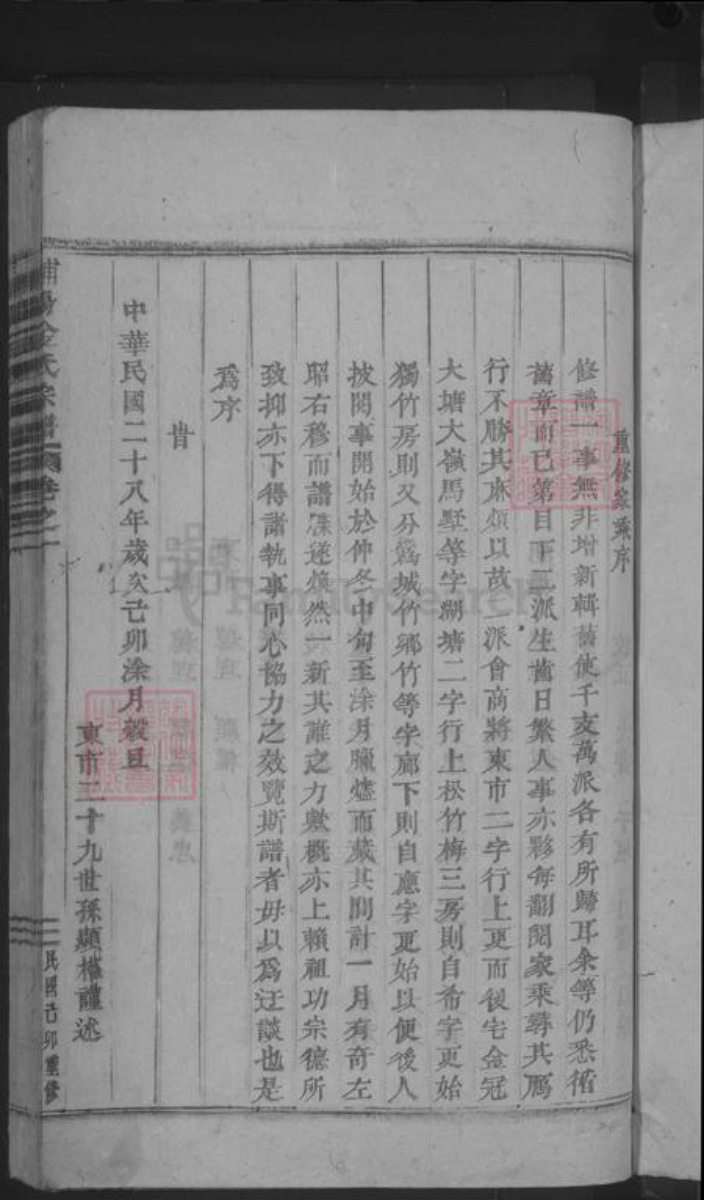 重修家乘序
修譜一事無非增新輯舊使千支萬派各有所歸耳余等仍悉循
舊章而已第目下二派生齒日繁人事亦夥每翻閱家乘尋其鴈
行不勝其麻煩以故二派會商將東市二字行上更而後宅金冠
大塘大嶺馬墅等字湖塘二字行上松竹梅三房則自希字更始
獨竹房則又分為城竹鄉竹等字廊下則自應字更始以便後人
披閱事開始於仲冬中旬至涂月臘尽而蕆其間計一月有奇左
昭右穆而譜牒遂煥然一新其誰之力歟概亦上賴祖功宗德所
致抑亦下得諸執事同心協力之效覽斯譜者毋以為迂談也是
為序
旹
中華民國二十八年歲次己卯涂月穀旦
東市二十九世孫顯 謹述
浦陽金氏宗譜 卷之一
民國己卯重修
FamilySearch